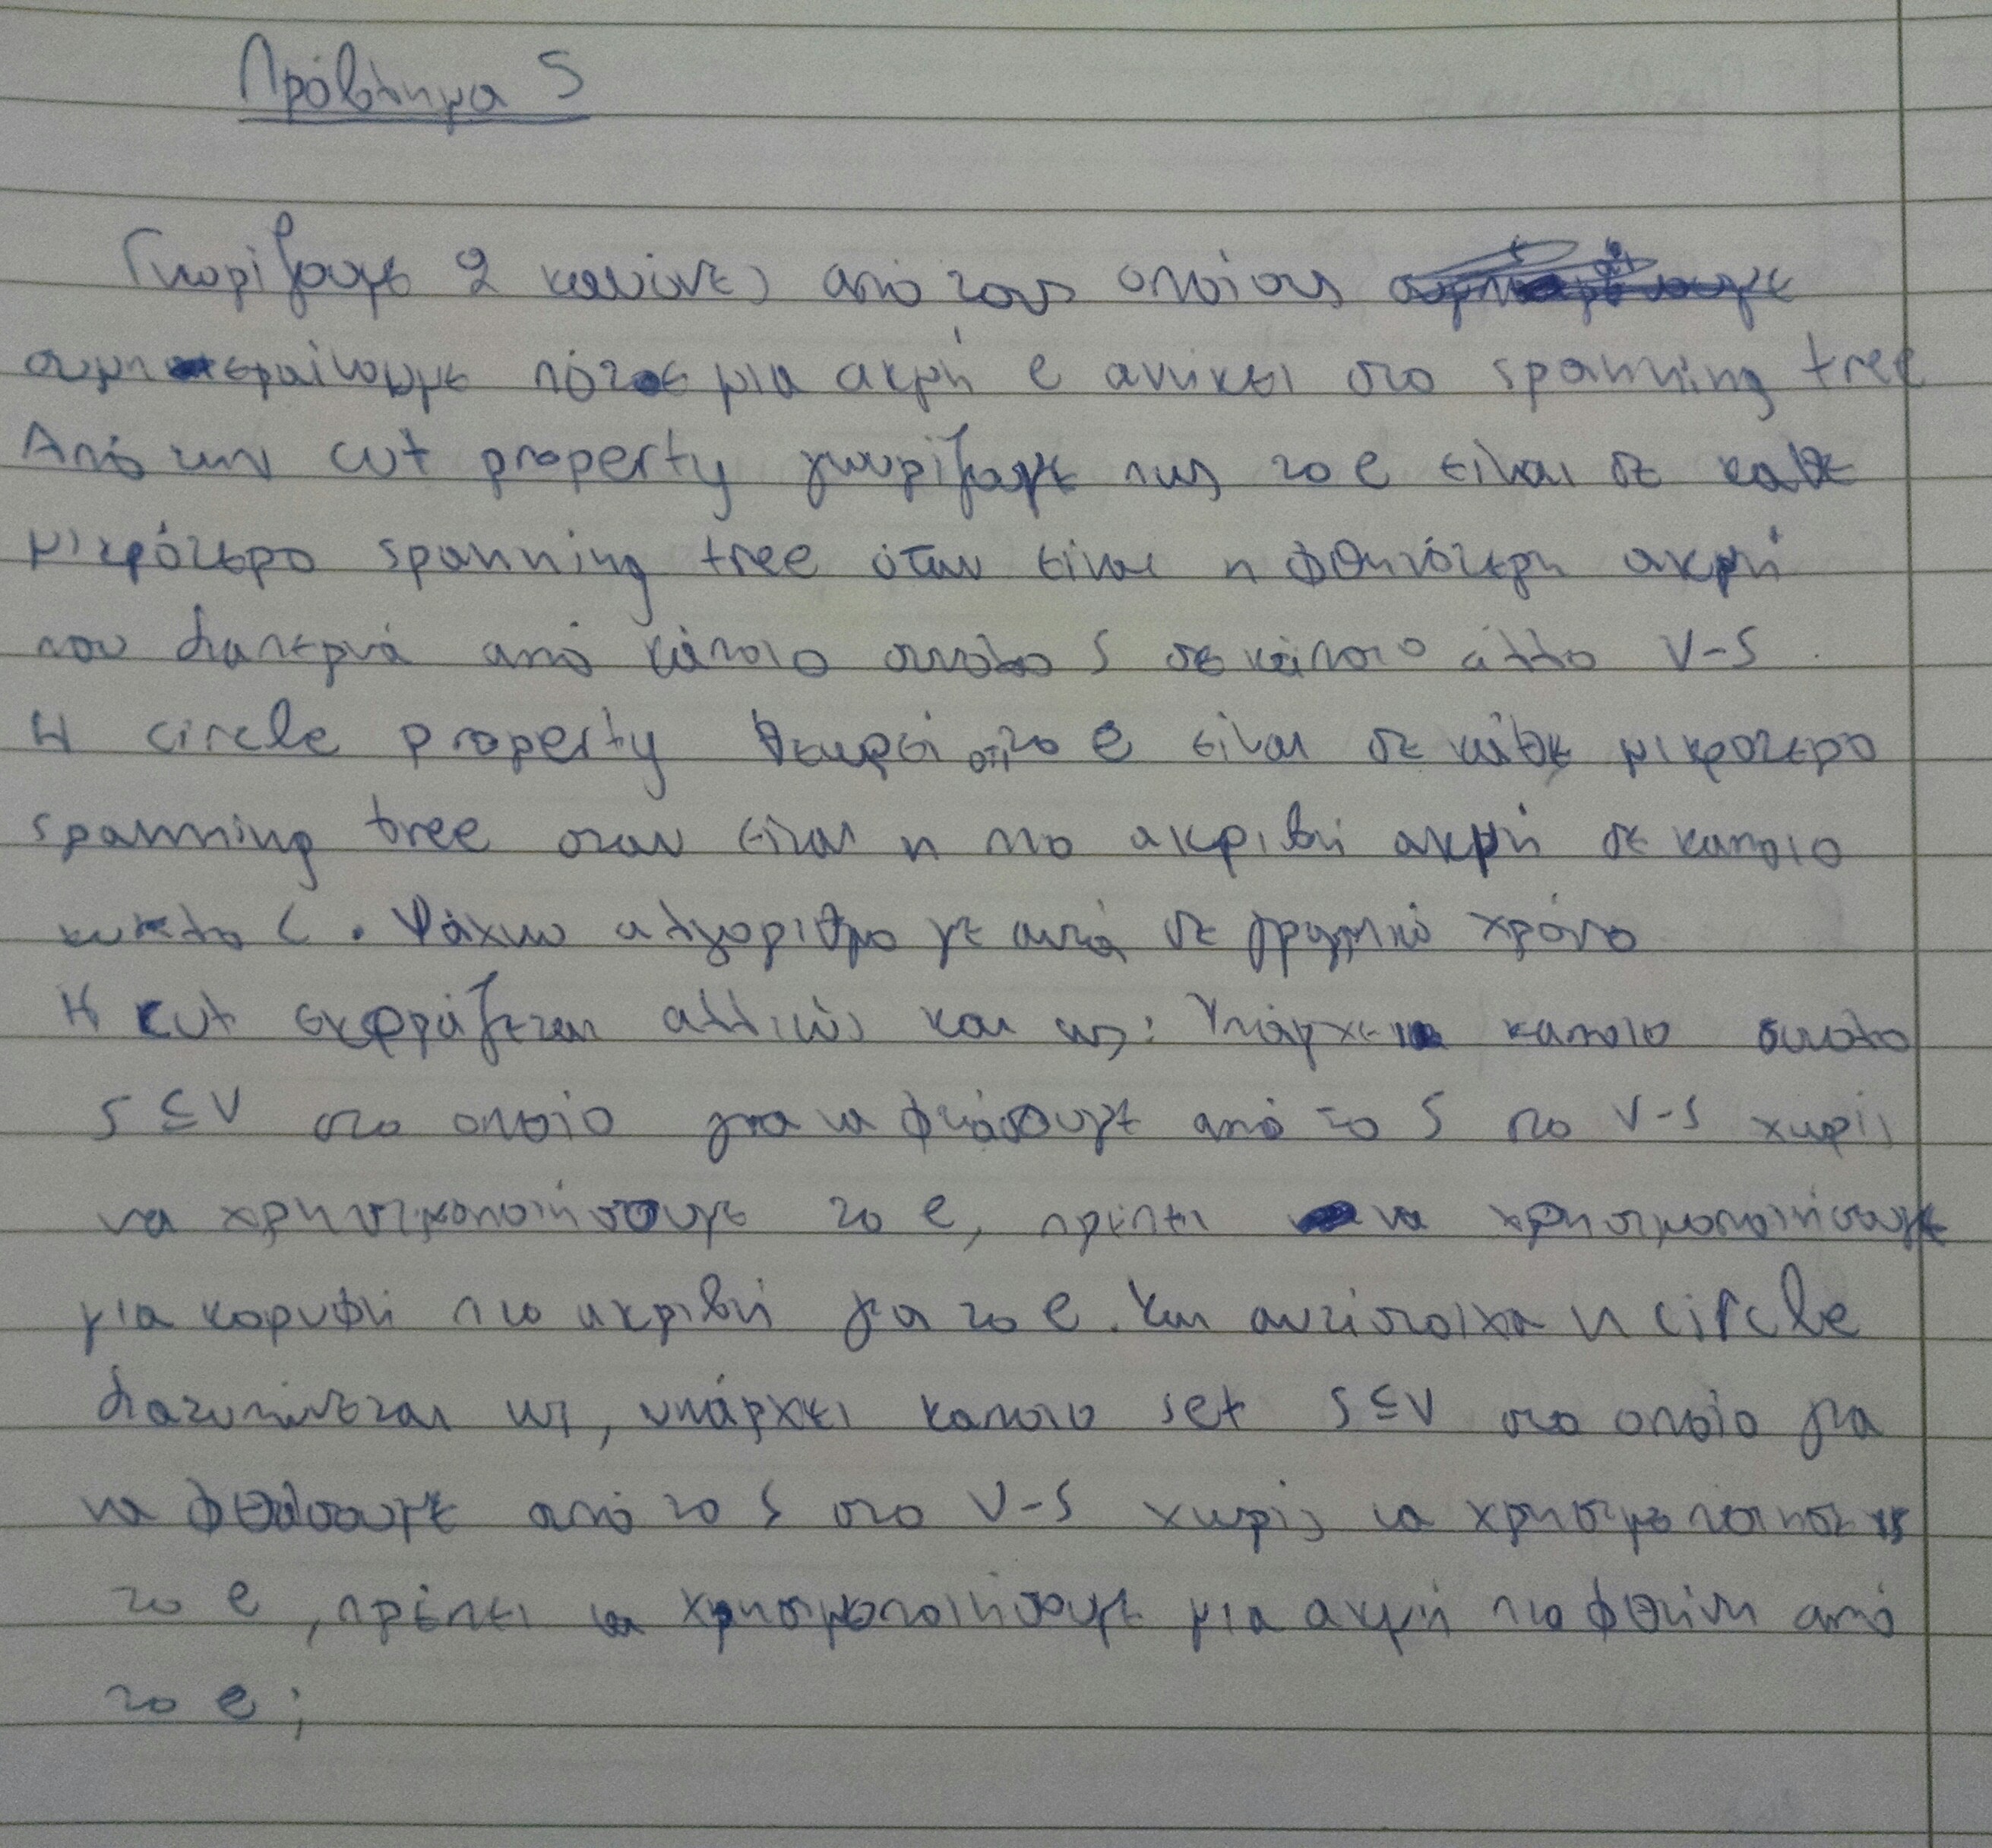 Πρόβλημα 5
Γνωρίζουμε 2 κανόνες από τους οποίους
συμπεραίνουμε πότε μια ακμή e ανήκει στο spanning tree
Από την cut property γνωρίζουμε πως το e είναι σε καθε
μικρότερο spanning tree όταν είναι η φθηνότερη ακμή
που διαπερνά από κάποιο συνολο S σε κάποιο άλλο V-S.
Η circle property θεωρεί οτι το e είναι σε κάθε μικροτερο
spanning tree οταν είναι η πιο ακριβή ακμή σε καποιο
κυκλο C. Ψάχνω αλγοριθμο με αυτά σε γραμμικό χρόνο
Η cut εκφράζεται αλλιώς και ως: Υπάρχει καποιο συνολο
S ⊆ V στο οποίο για να φτάσουμε από το S στο V-S χωρίς
να χρησιμοποιήσουμε το e, πρέπει να χρησιμοποιήσουμε
μια κορυφή πιο ακριβή για το e. Και αντίστοιχα η circle
διατυπώνεται ως, υπάρχει καποιο set S ⊆ V στο οποίο για
να φθάσουμε από το S στο V-S χωρίς να
το e, πρέπει να χρησιμοποιήσουμε μια ακμή πιο φθηνη από
το e;